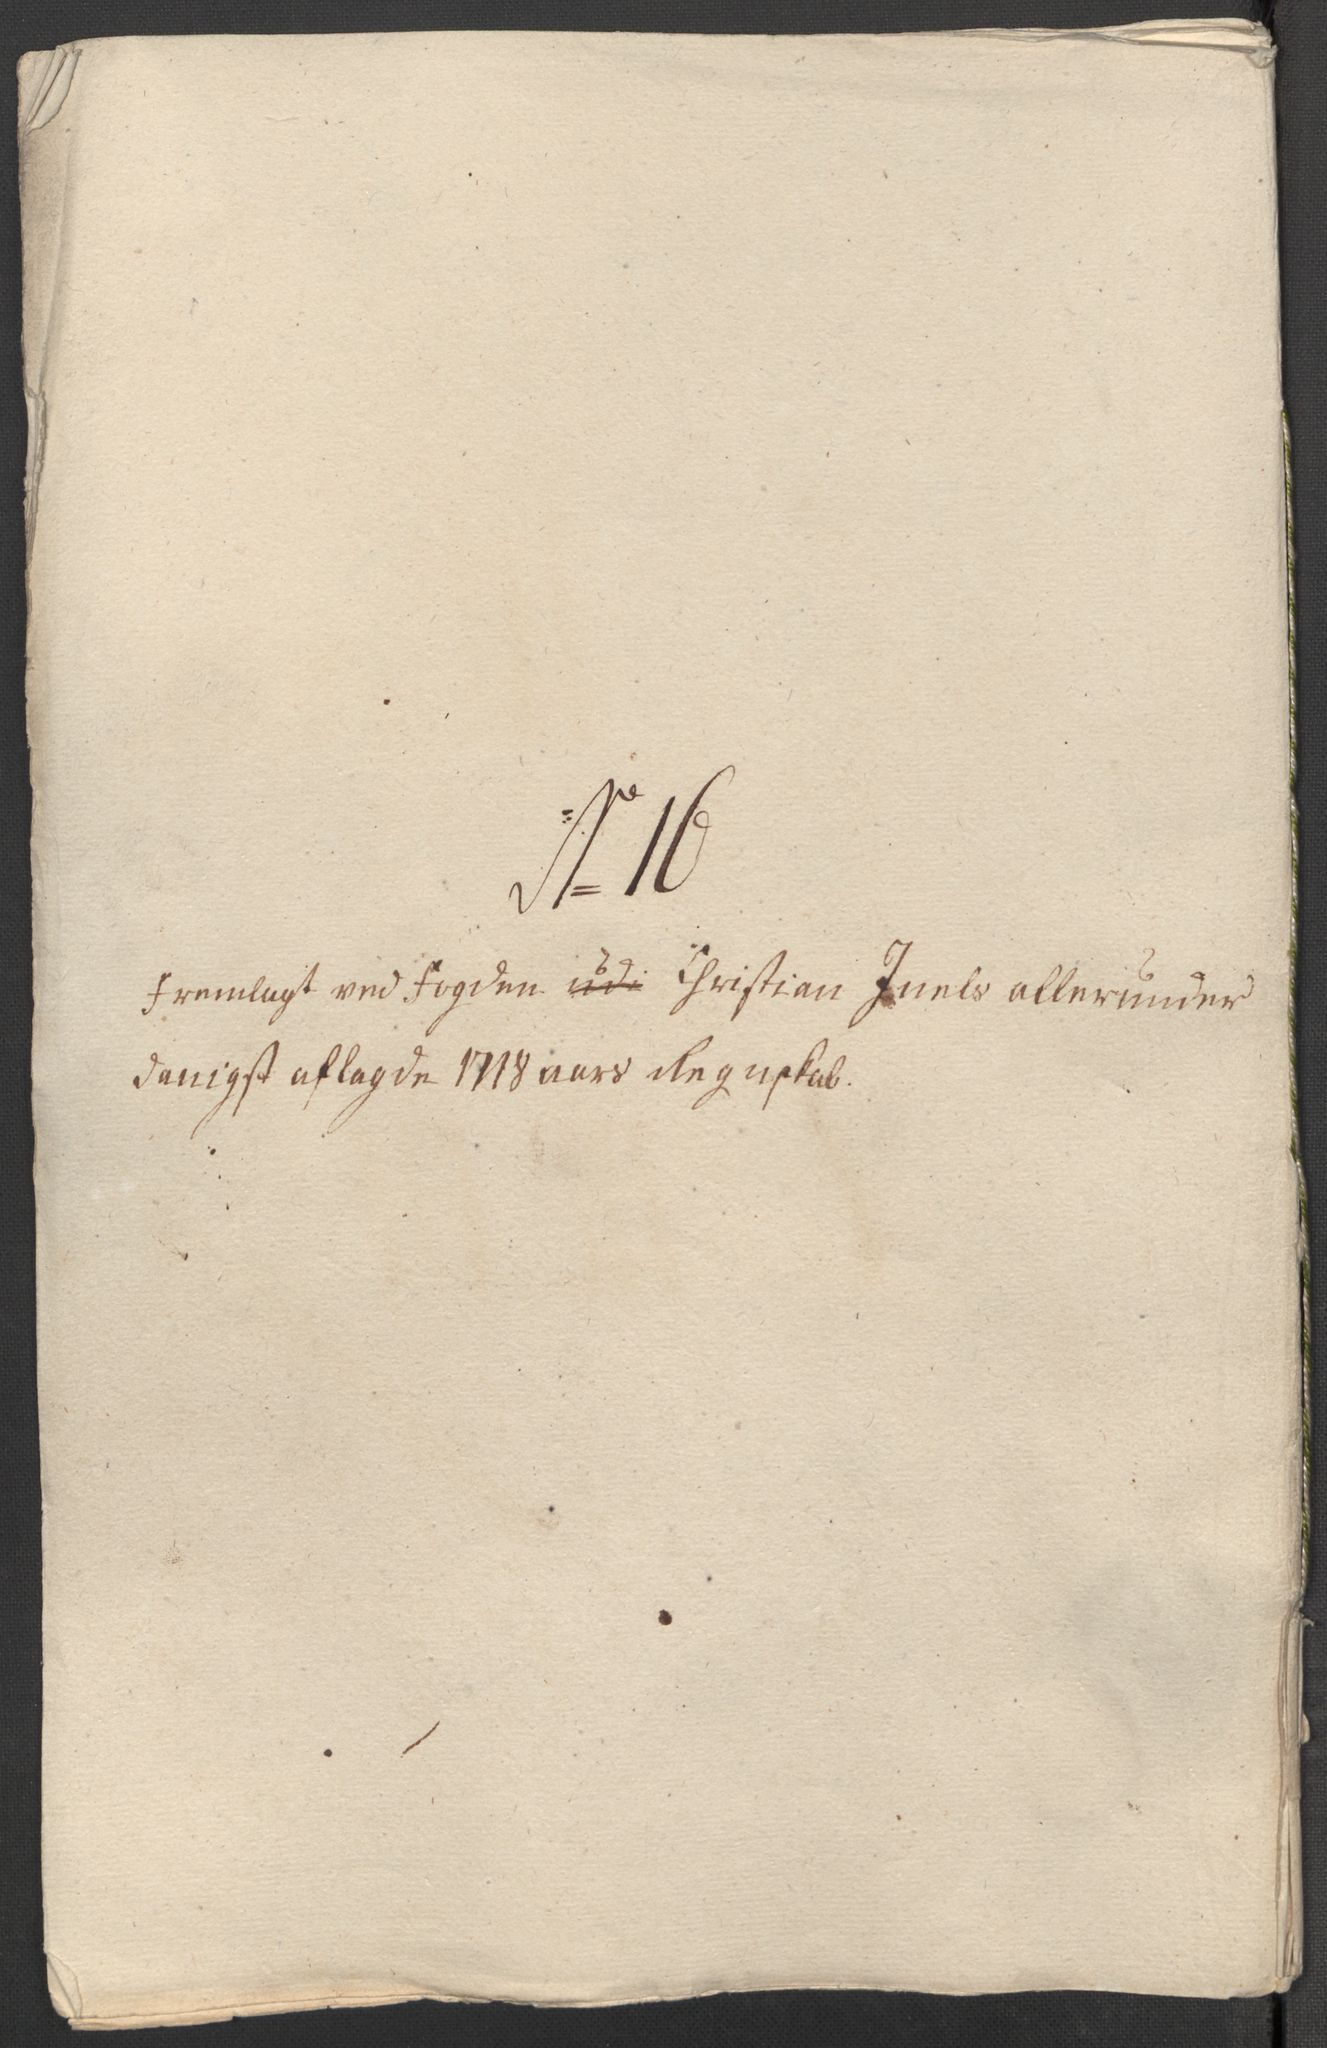 No 16
Fremlagt ved Fogden udi Christian Juels allerunder
danigst aflagde 1718 aars Regnskab.